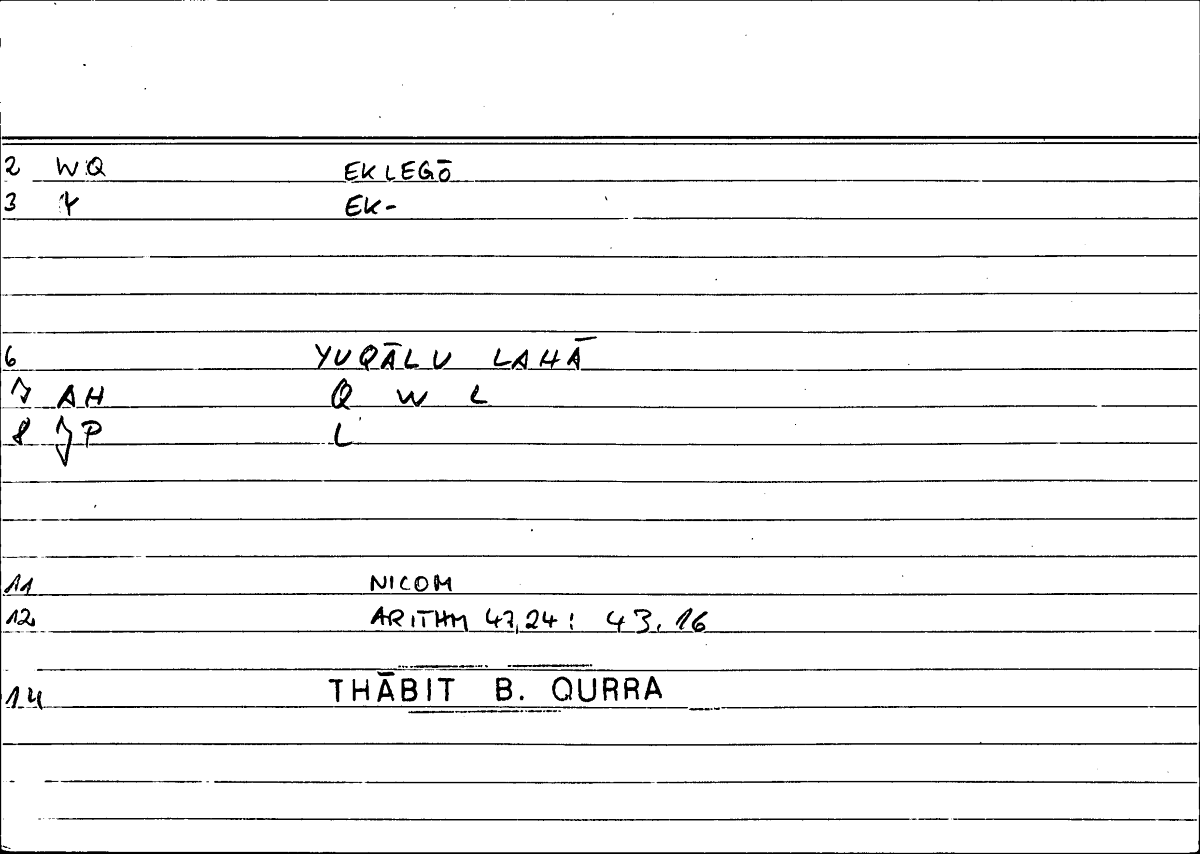 2 WQ EKLEGŌ
3 Y EK-
6 YUQĀLU LAHĀ
7 AH Q W L
8 JP L
11 NICOM
12 ARITHM 47,24: 43.16
14 THĀBIT B. QURRA